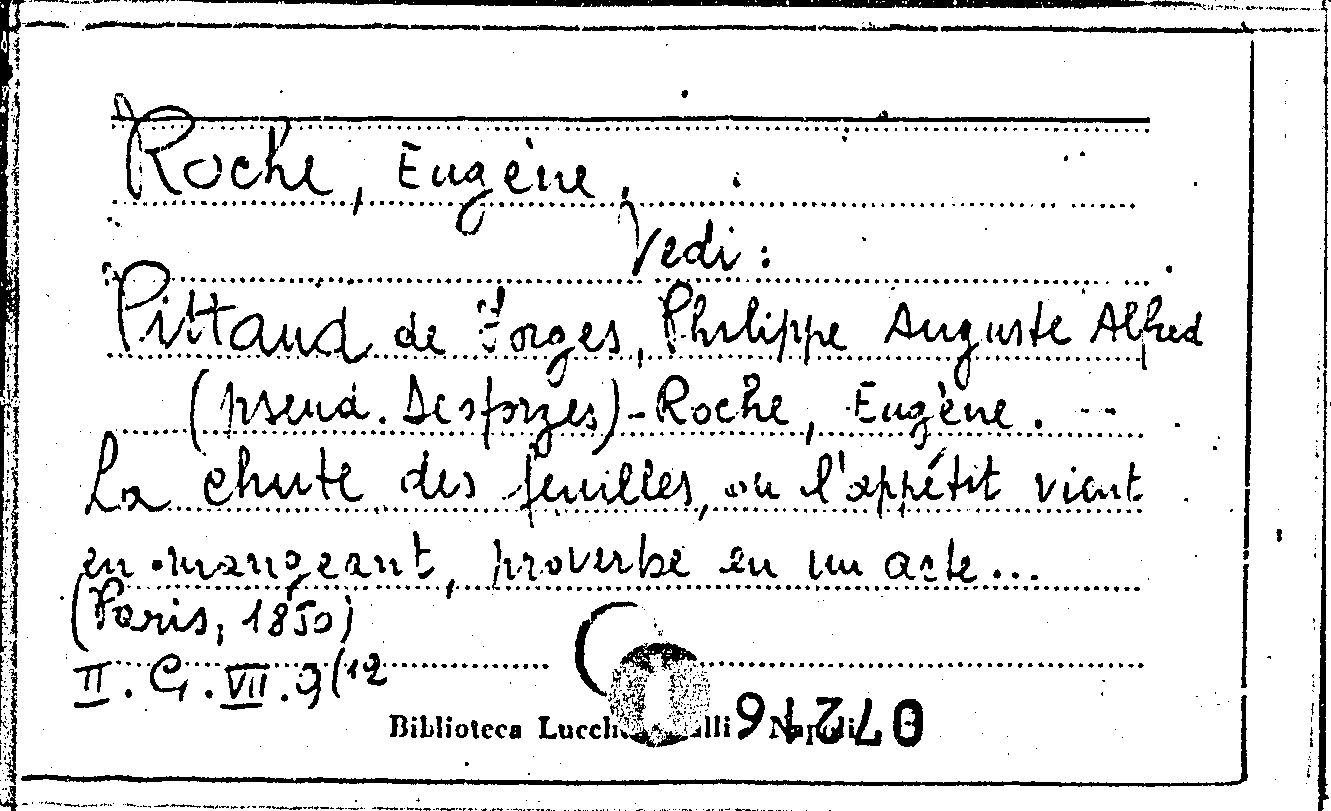 Roche, Eugène.
Vedi:
Pittaud de Forges, Philippe Auguste Alfred
(pseud. Desforges) - Roche, Eugène. --
La chute des feuilles, ou l'appétit vient
en mangeant, proverbe en un acte...
(Paris, 1850)
II. G. VII. 9(12
Biblioteca Lucchesi Palli Napoli